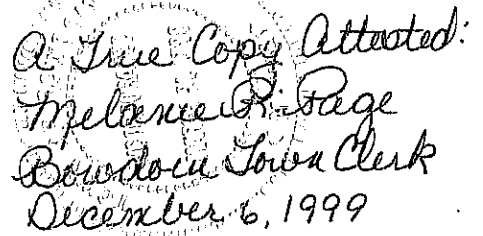 A True Copy Attested:
Melanie R. Page
Bowdoin Town Clerk
December 6, 1999